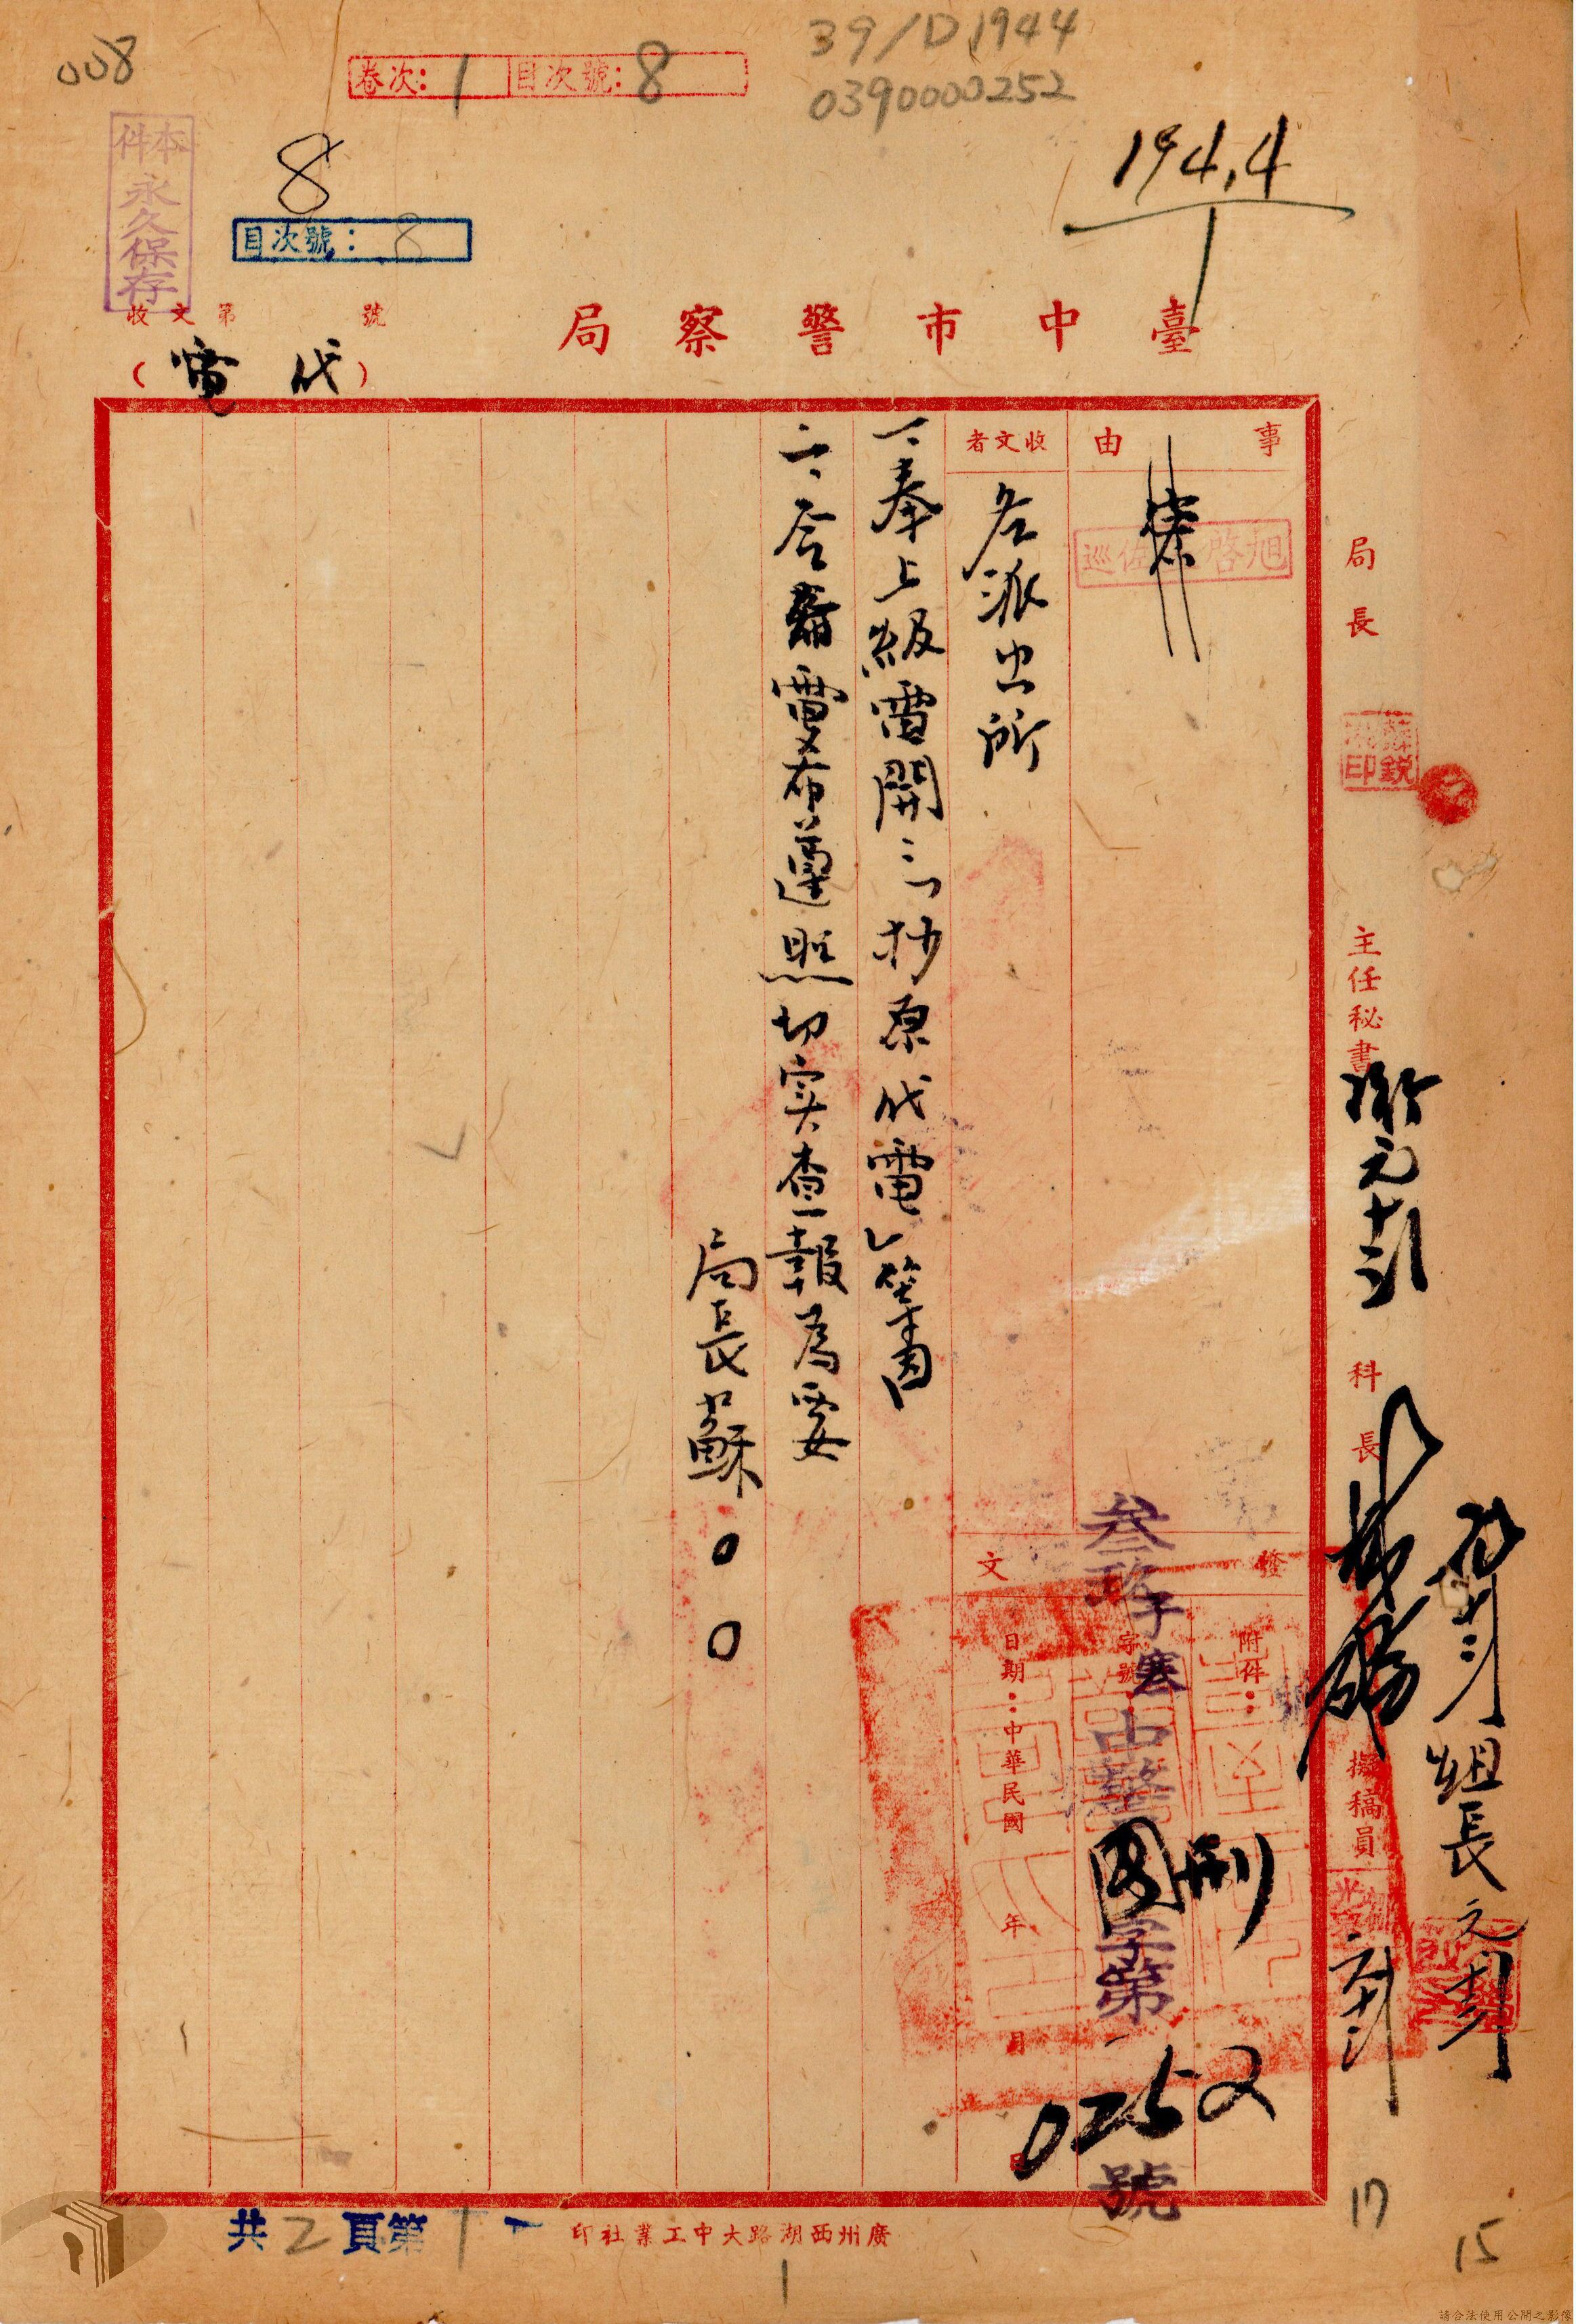 008
卷次:1 目次號:8
39/D1944
0390000252
本件永久保存
8
目次號:8
1944
1
收文第 號
臺中市警察局
(代電)
事由
收文者
各派出所
一、奉上級電開云云抄原代電
二、合電希遵照切实查報為要
局長蘇00
發文
附件:
字號:
日期:中華民國 年 月 日
叁玖子寒
中警
刑
字第
0252
號
局長
主任秘書
元十三
科長
擬稿員
組長
元十三
共2頁第1
廣州西湖路大中工業社印
1
17
15
請合法使用公開之影像